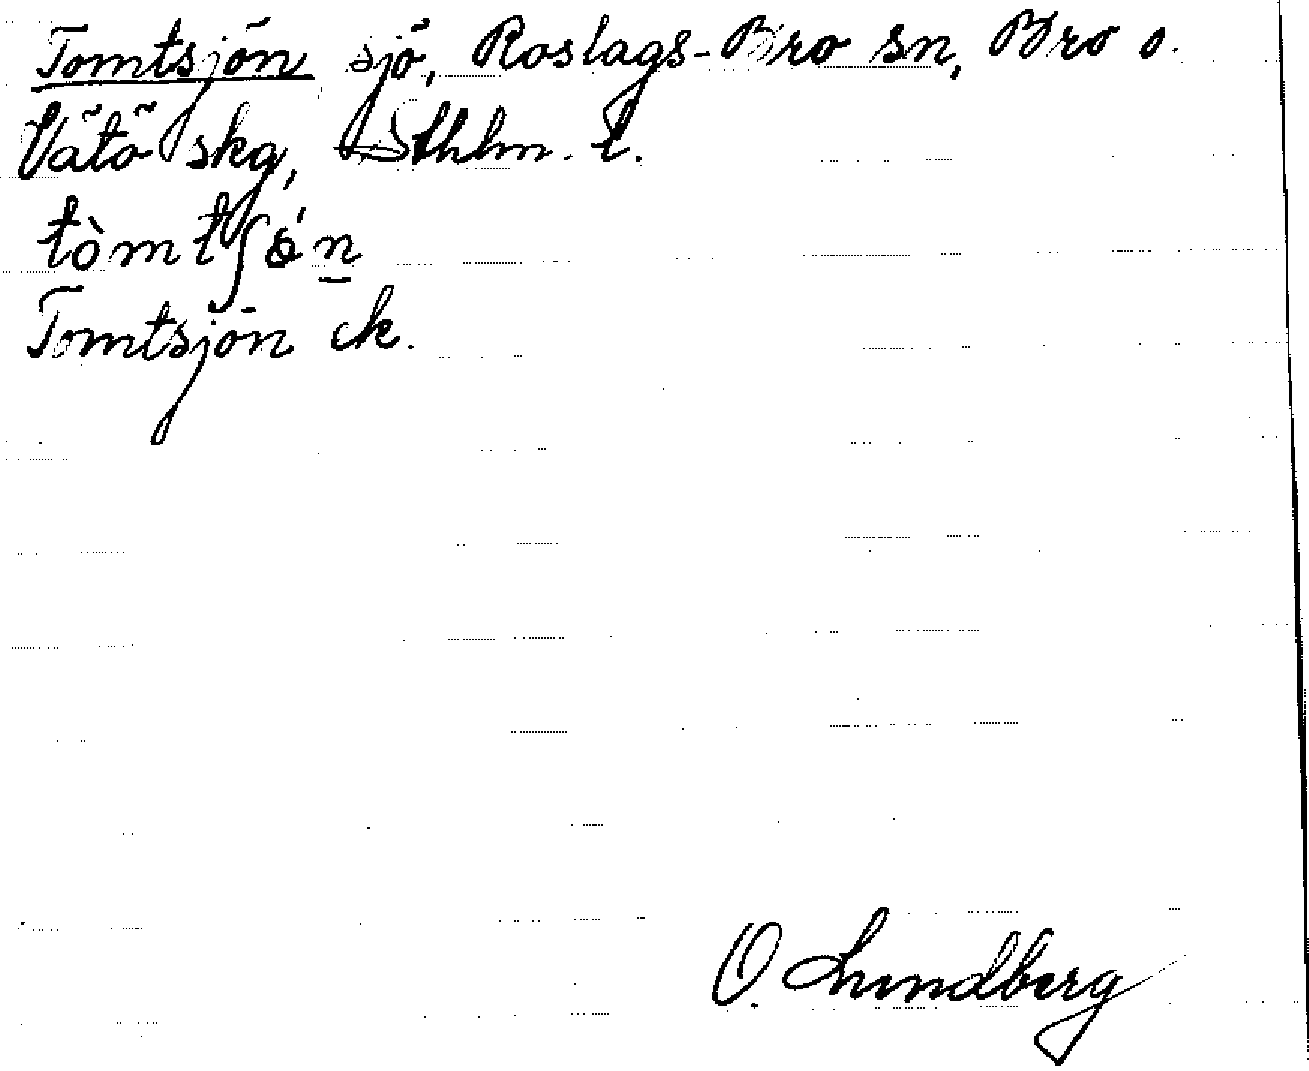 Tomtsjön sjö, Roslags-Bro sn, Bro o.
Vätö skg, Sthlm. l.
tòmtʃö́n
Tomtsjön ek.
O. Lundberg